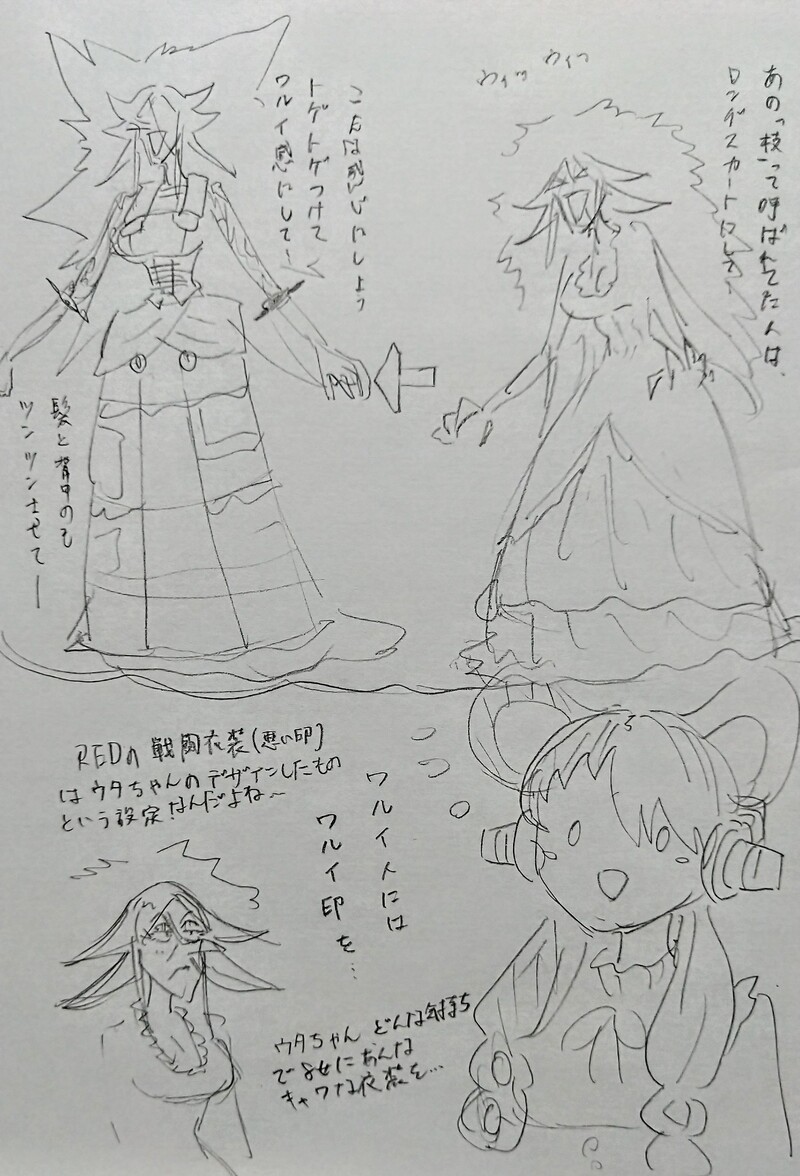 あの"枝"って呼ばれてた人は、
ロングスカートにして〜
ウィッ ウィッ
こんな感じにしよう
トゲトゲつけて
ワルイ感にして〜
髪と背中のも
ツンツンさせてー
REDの戦闘衣装(悪い印)
はウタちゃんのデザインしたもの
という設定!なんだよね〜
ワルイ人には
ワルイ印を…
ウタちゃん どんな気持ち
であんな
キャワな衣装を…